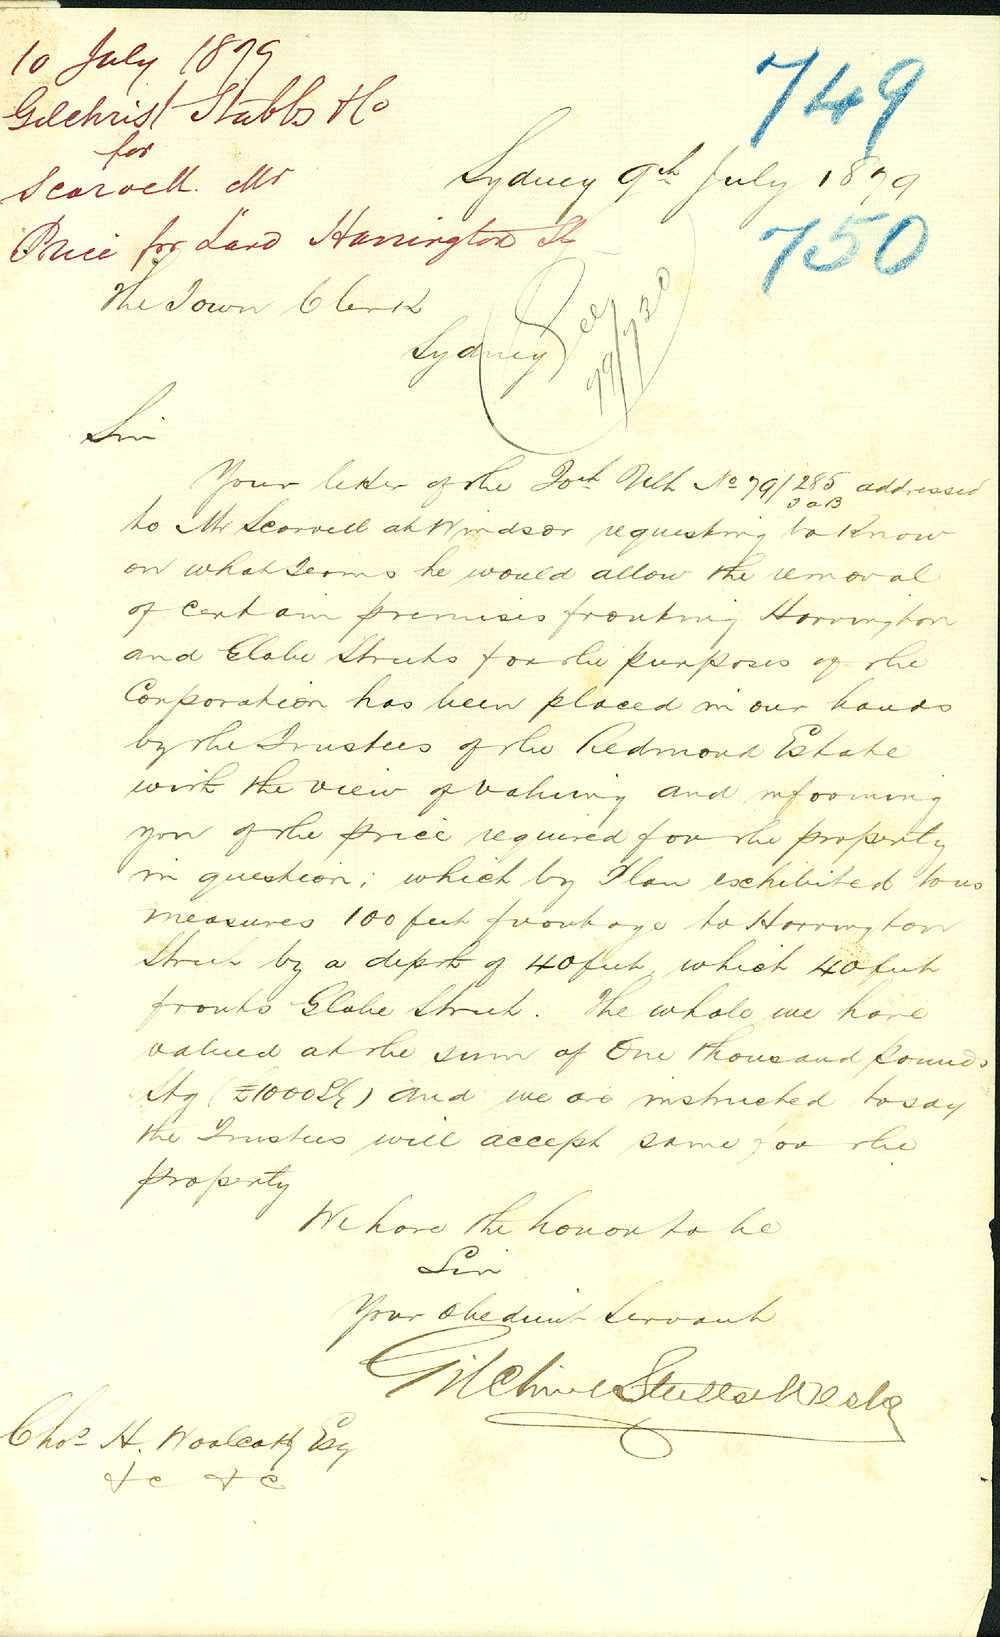 10 July 1879
Gilchrist Stubbs & Co
for
Scarvell. Mr
Price for Land Harrington St
749
Sydney 9th July 1879
750
The Town Clerk
Sydney
See
79/730
Sir
Your letter of the 30th Ult No 79/285 addressed
to Mr Scarvell at Windsor requesting to Know
on what Terms he would allow the removal
of certain premises fronting Harrington
and Globe Streets for the purposes of the
Corporation has been placed in our hands
by the Trustees of the Redmond Estate
with the view of valuing and informing
you of the price required for the property
in question; which by Plan exhibited to us
measures 100 feet frontage to Harrington
Street by a depth of 40 feet, which 40 feet
fronts Globe Street. The whole we have
valued at the sum of One thousand pounds
Stg (£1000Stg) and we are instructed to say
the Trustees will accept same for the
property
We have the honor to be
Sir
Your Obedient Servants
Gilchrist Stubbs
Chas H. Woolcott Esq
&c &c